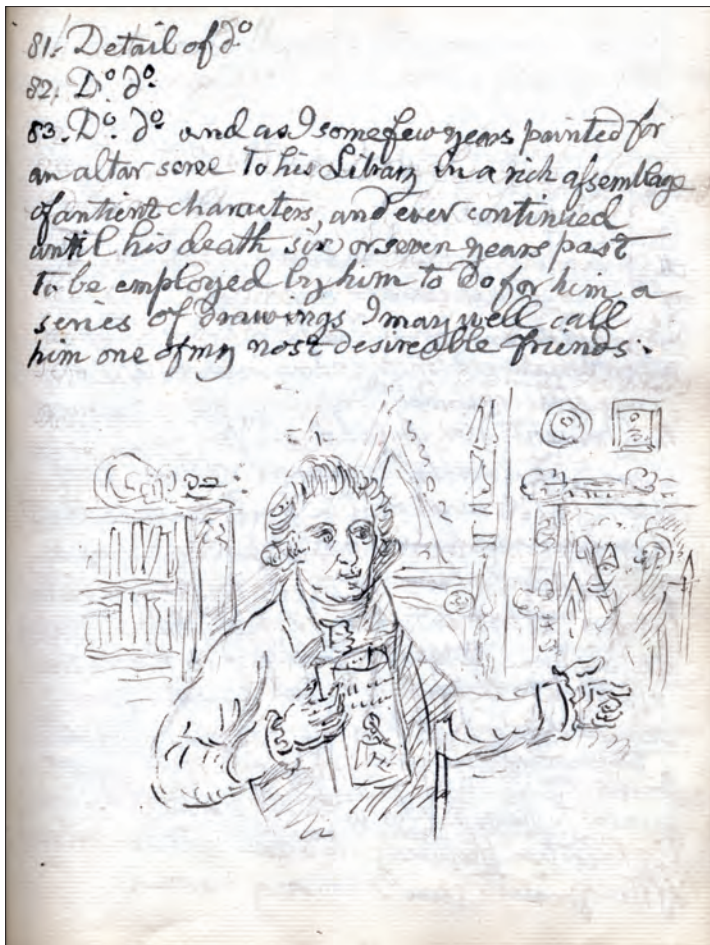 81. Detail of do
82. Do do
83. Do do and as I some few years painted for
an altar scree to his Library in a rich assemblage
of antient characters, and ever continued
until his death six or seven years past
to be employed by him to do for him a
series of drawings I may well call
him one of my most desireable friends.